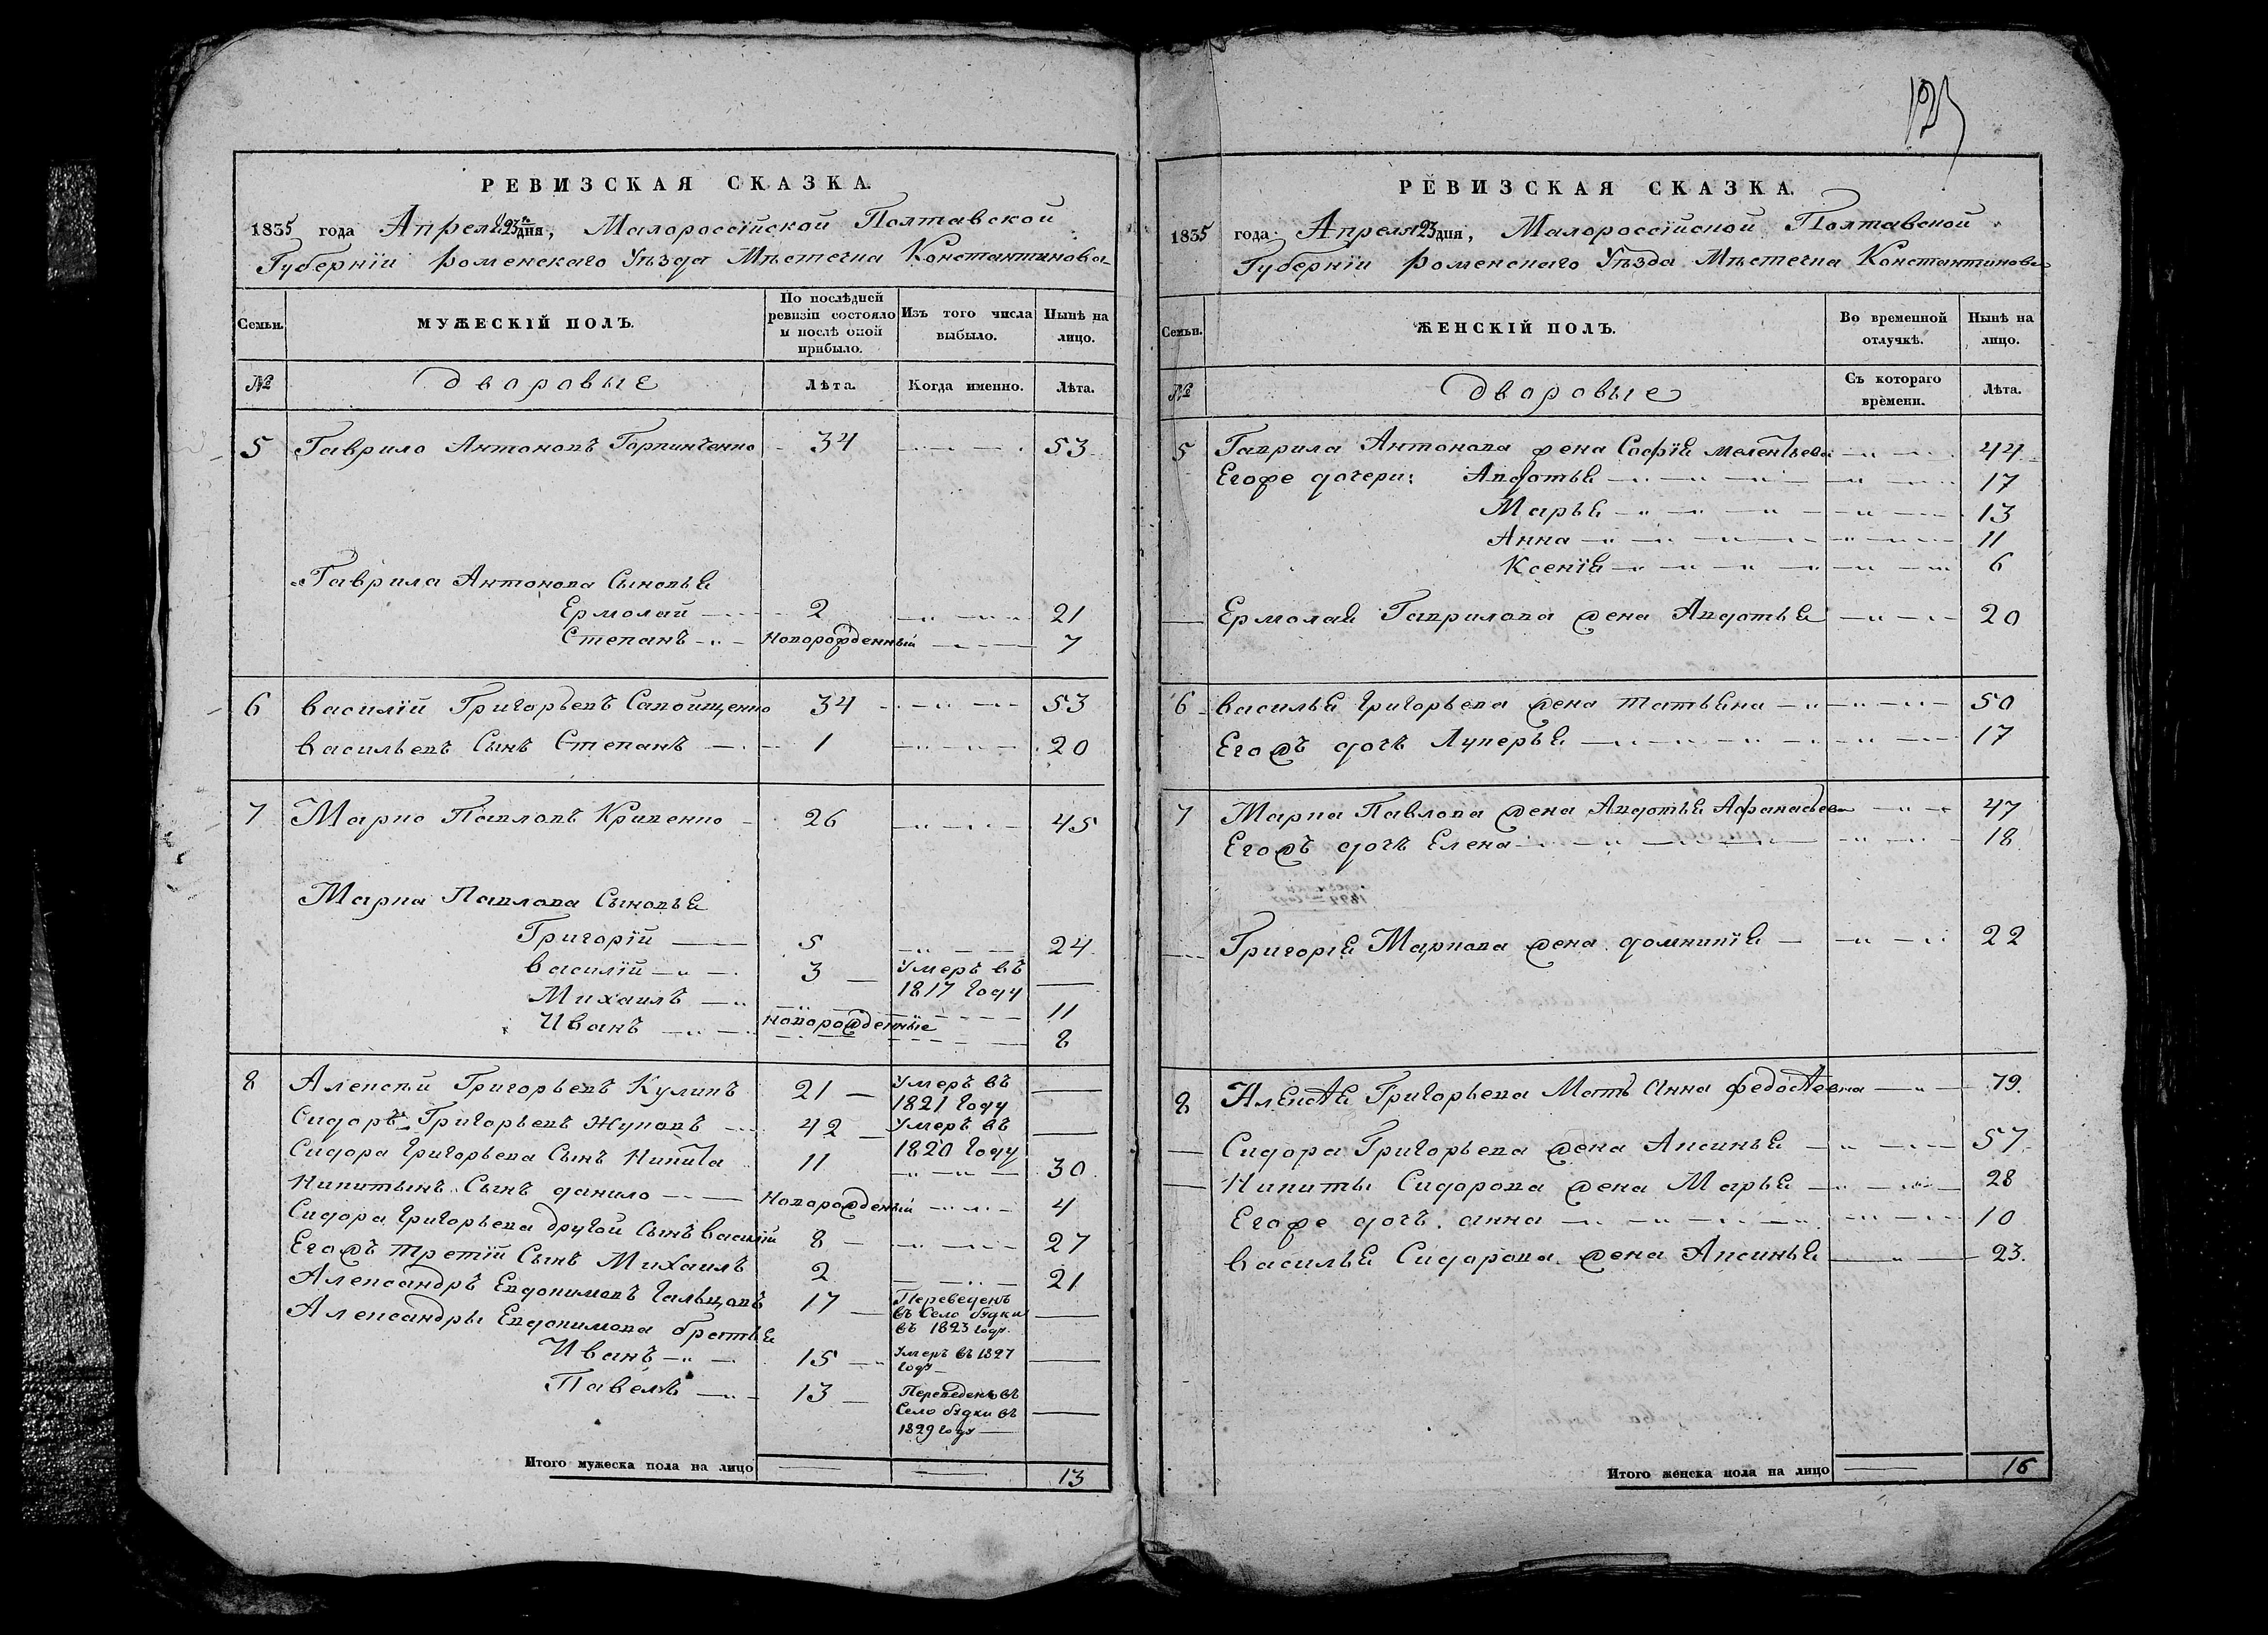 РЕВИЗСКАЯ СКАЗКА.
1835 года Апреля 23 дня, Малороссійской Полтавской
Губерніи Роменскаго Уѣзда Мѣстечка Константинова
Семьи.
МУЖЕСКІЙ ПОЛЪ.
По послѣдней ревизіи состояло и послѣ оной прибыло.
Изъ того числа выбыло.
Нынѣ на лицо.
№
дворовые
Лѣта.
Когда именно.
Лѣта.
5 Гаврило Антоновъ Горпинченко 34 53
Гаврила Антонова Сыновья
Ермолай 2 21
Степанъ новорожденный 7
6 Василій Григорьевъ Сапойщенко 34 53
Васильевъ Сынъ Степанъ 1 20
7 Марко Павловъ Кривенко 26 45
Марка Павлова Сыновья
Григорій 5 24
Василій 3 Умеръ въ 1817 году
Михаилъ 11
новорожденные
Иванъ 8
8 Алексѣй Григорьевъ Куликъ 21 Умеръ въ 1821 году
Сидоръ Григорьевъ Жуковъ 42 Умеръ въ 1820 году
Сидора Григорьева Сынъ Никита 11 30
Никитынъ Сынъ данило Новорожденый 4
Сидора Григорьева другой Сынъ Василій 8 27
Егожъ третій Сынъ Михаилъ 2 21
Александръ Евдокимовъ Гальцовъ 17 Переведенъ въ Село будки въ 1823 году.
Александры Евдокимова братья
Иванъ 15 Умеръ въ 1827 году
Павелъ 13 Переведенъ въ Село будки въ 1829 году
Итого мужеска пола на лицо 13
123
РЕВИЗСКАЯ СКАЗКА.
1835 года Апреля 23 дня, Малороссійской Полтавской
Губерніи Роменскаго Уѣзда Мѣстечка Константинова
Семьи.
ЖЕНСКІЙ ПОЛЪ.
Во временной отлучкѣ.
Нынѣ на лицо.
№
дворовые
Съ котораго времени.
Лѣта.
5 Гаврила Антонова жена Софія Мелентьева 44
Егоже дочери: Авдотья 17
Марья 13
Анна 11
Ксенія 6
Ермолая Гаврилова жена Авдотья 20
6 Василья Григорьева жена татьяна 50
Егожъ дочь Лукерья 17
7 Марка Павлова жена Авдотья Афанасьева 47
Егожъ дочь Елена 18
Григорія Маркова жена домникія 22
8 Алексѣя Григорьева Мать Анна федосѣевна 79.
Сидора Григорьева жена Аксинья 57.
Никиты Сидорова жена Марья 28
Егоже дочь анна 10
Василья Сидорова жена Аксинья 23.
Итого женска пола на лицо 16